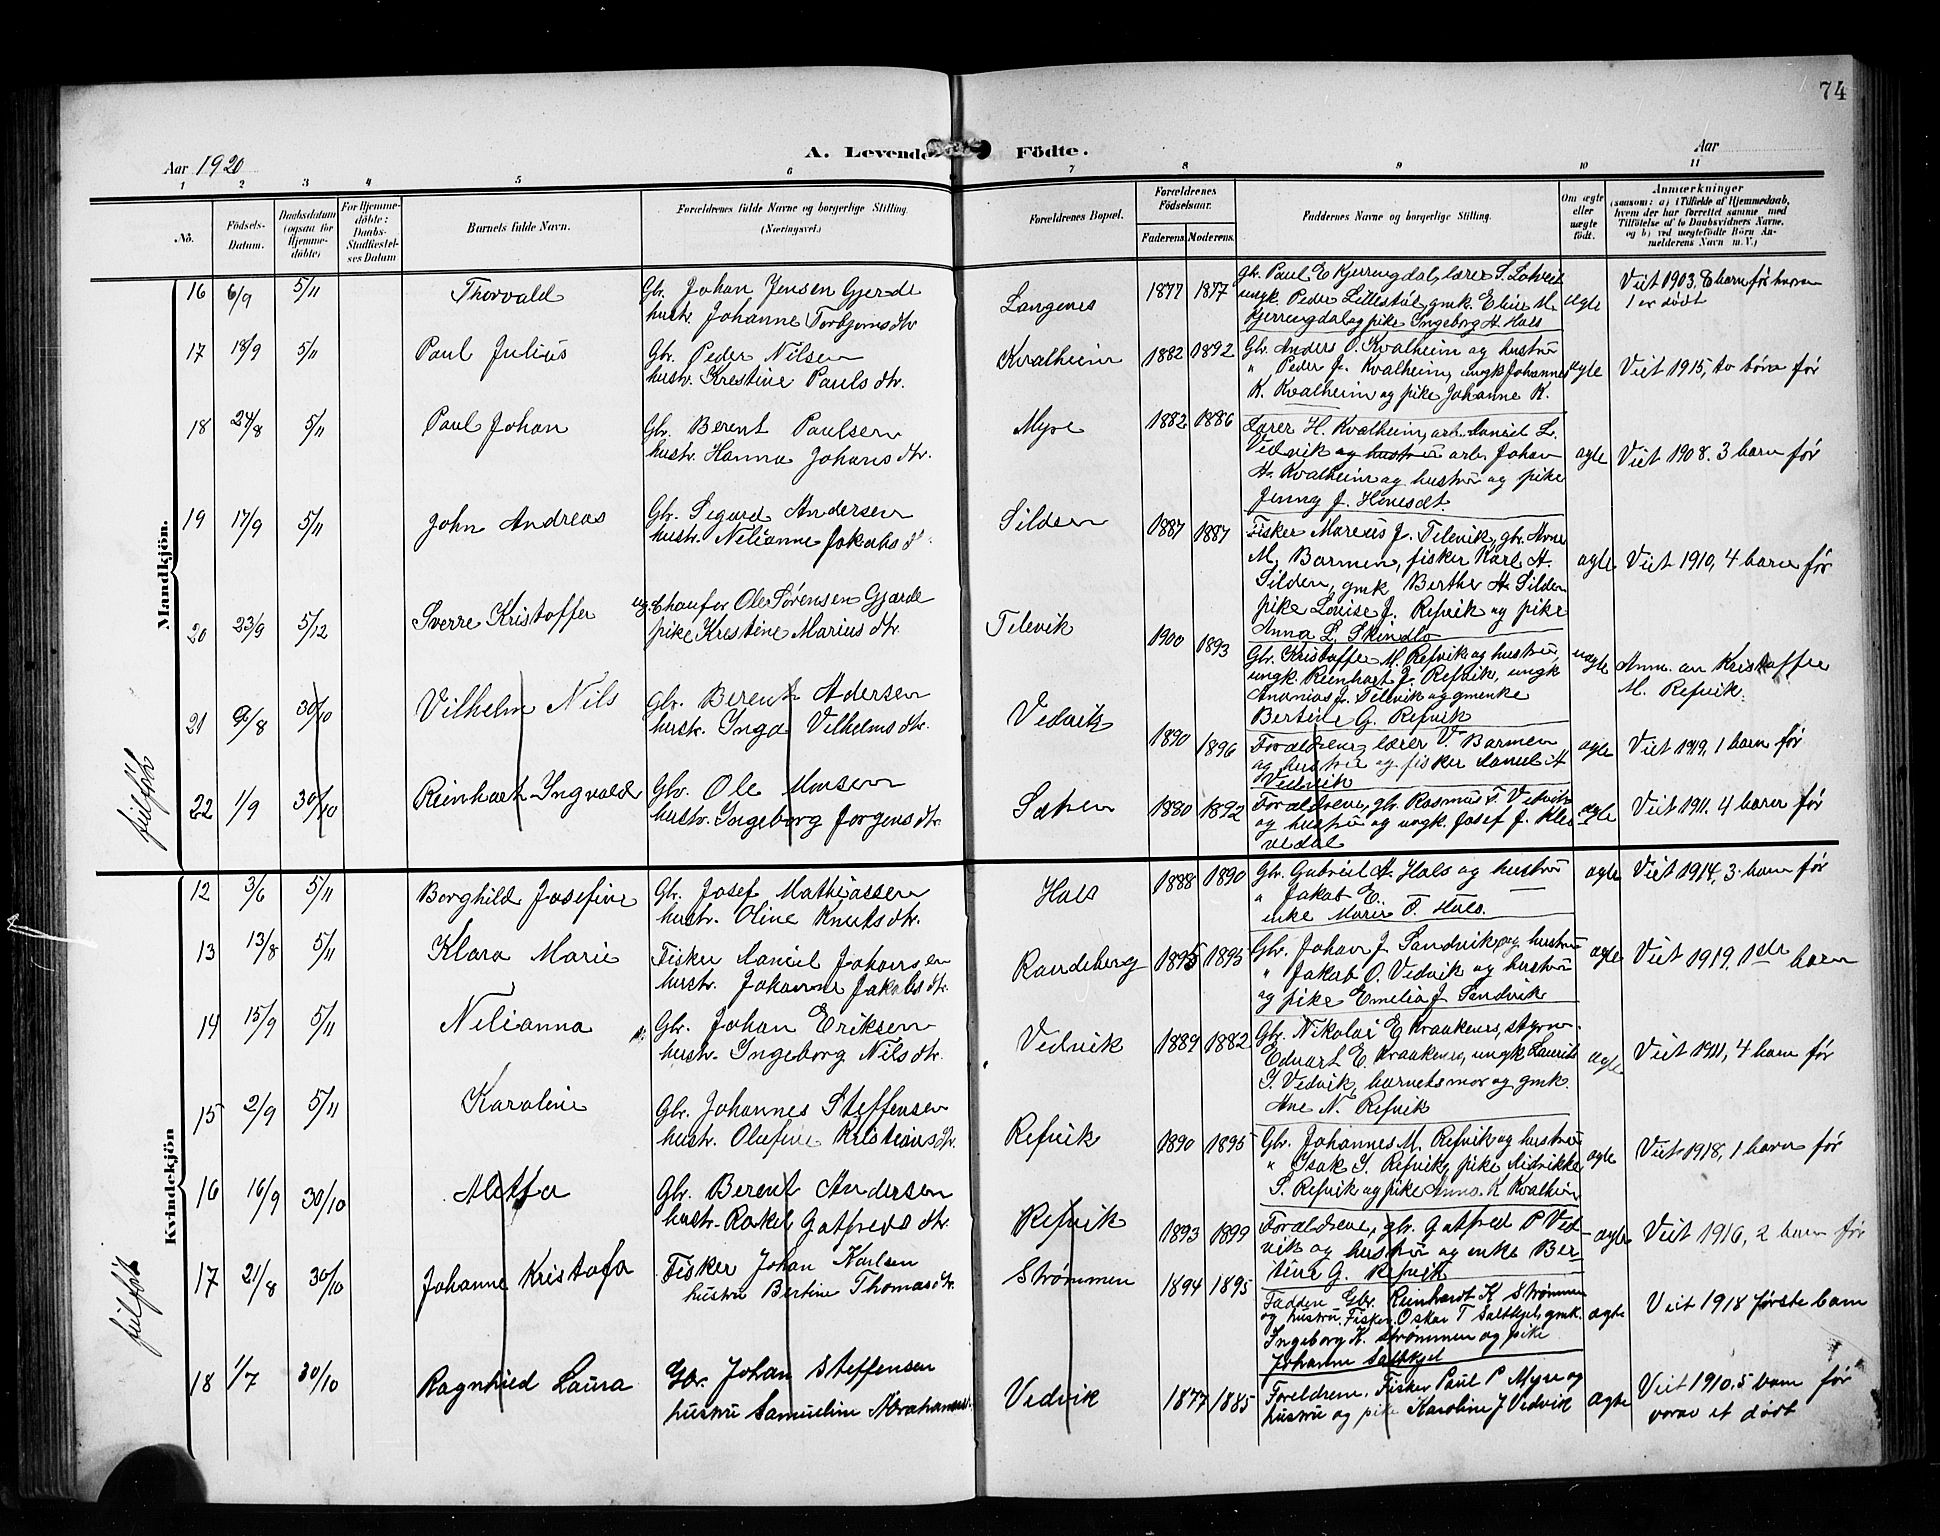 74
A. Levende Födte.
Aar 1920
Aar
1 2 3 4 5 6 7 8 9 10 11
No.
Födsels-Datum.
Daabsdatum (ogsaa for Hjemme-döbte)
For Hjemme-döbte: Daabs-Stadfæstel-ses Datum
Barnets fulde Navn.
Forældrenes fulde Navne og borgerlige Stilling. (Næringsvei.)
Forældrenes Bopæl.
Forældrenes Födselsaar.
Faderens Moderens.
Faddernes Navne og borgerlige Stilling.
Om ægte eller uægte födt.
Anmærkninger
(saasom: a) i Tilfælde af Hjemmedaab, hvem der har forrettet samme, med Tilföielse af to Daabsvidners Navne, og b) ved uægtefödte Börn An-melderens Navn m. V.)
Mandkjön.
16 6/9 5/11 Thorvald Gbr. Johan Jensen Gjerde Langenes 1877 1877 gbr. Paul E Kjerringdal, lærer S.
hustr. Johanne Torbjørns dtr ungk. Peder Lillestøl, gmk. Eline M. ægte Viet 1903, 8 barn før hvorav
Kjerringdal og pike Ingeborg H. Hals 1 er dødt
17 18/9 5/11 Paul Julius Gbr. Peder Nilsen Kvalheim 1882 1892 Gbr. Anders O. Kvalheim og hustru
hustr. Kristine Pauls dtr. " Peder J. Kvalheim, ungk Johannes ægte Viet 1915, to børn før
K. Kvalheim og pike Johanne K.
18 24/8 5/11 Paul Johan Gbr. Berent Paulsen Myre 1882 1886 Lærer H. Kvalheim, arb. Daniel L.
hustr. Hanna Johans dtr. Vedvik og hustru arb. Johan ægte Viet 1908. 3 barn før
H. Kvalheim og hustru og pike
Jenny J.
19 17/9 5/11 John Andreas Gbr. Sigurd Andersen Silden 1887 1887 Fisker Marius J. Tilevik, gbr. Arne
hustr. Nilianne Jakobs d M. Barmen, fisker Karl H. ægte Viet 1910, 4 barn før
Silden, gmk Berthe H. Silden
pike Lovise J. Refvik og pike
Anna L.
20 23/9 5/12 Sverre Kristoffer ug. Chaufør Ole Sørensen Gjærde Tilevik 1900 1893
pike Kristine Marius dtr. Gbr. Kristoffer M. Refvik og hustru uægte Anm. av Kristoffer
ungk. Reinhart J. Refvik, ungk M. Refvik.
Ananias J. Tilevik og gmenke
G. Refvik
feilført
21 9/8 30/10 Vilhelm Nils Gbr. Berent Adersen Vedvik 1890 1896
hustr. Inga Vilhelms dtr. Forældrene, lærer V. Barmen ægte Viet 1919, 1 barn før
og hustru og fisker Daniel H
Vedvik
22 1/9 30/10 Reinhart Ingvald Gbr. Ole Monsen Sætren 1880 1892 Forældrene, gbr. Rasmus T. Vedvik ægte Viet 1911. 4 barn før
hustr. Ingeborg Jørgens dtr. og hustru og ungk. Josef J.
Kvindekjön
12 3/6 5/11 Borghild Josefine Gbr. Josef Mathiassen Hals 1888 1890 Gbr. Gabriel A. Hals og hustru ægte Viet 1914, 3 barn før
hustr. Oline Knuts dtr. " Jakob E. —
enke Marie O. Hals.
13 13/8 5/11 Klara Marie Fisker Daniel Johansen Randeberg 1895 1895 Gbr. Johan J. Sandvik og hustru ægte Viet 1919. 1ste barn
hustr. Johanne Jakobs dtr. " Jakob O. Vedvik og hustru
og pike Emelia J Sandvik
14 15/9 5/11 Nilianna Gbr. Johan Eriksen Vedvik 1889 1882 Gbr. Nikolai E Kraakenes, styrm.
hustr. Ingeborg Nils dtr. Edvart E. Kraakenes, ungk Laurits ægte Viet 1911, 4 barn før
S. Vedvik, barnets mor og gmk.
Ane N. Refvik
15 2/9 5/11 Karoline Gbr. Johannes Steffensen Refvik 1890 1895 Gbr. Johannes M. Refvik og hustru
hustr. Olufine Kristians dtr. " Isak S. Refvik, pike Didrikke ægte Viet 1918, 1 barn før
S. Refvik og pike Anna K Kvalheim
16 16/9 30/10 Metta Gbr. Berent Andersen Refvik 1893 1899 Forældrene, gbr. Gotfred P Ved- ægte Viet 1916, 2 barn før
hustr. Rakel Gotfreds dtr. vik og hustru og enke Ber-
tine G. Refvik
feilført
17 21/8 30/10 Johanne Kristofa Fisker Johan Karlsen Strømmen 1894 1895
hustru Bertine Thomas dtr. Fadder Gbr. Reinhardt K Strømmen
og hustru. Fisker Oskar T Saltkjel, gmk. ægte Viet 1918 første barn
Ingeborg K. Strømmen og pike
Johanne Saltkjel
18 1/7 30/10 Ragnhild Laura Gbr. Johan Steffensen Vedvik 1877 1885 Foreldrene. Fisker Paul P Myre og ægte Viet 1910. 5 barn før
hustru Samueline Abrahamsd. hustru og pike Karoline J Vedvik vorav et dødt